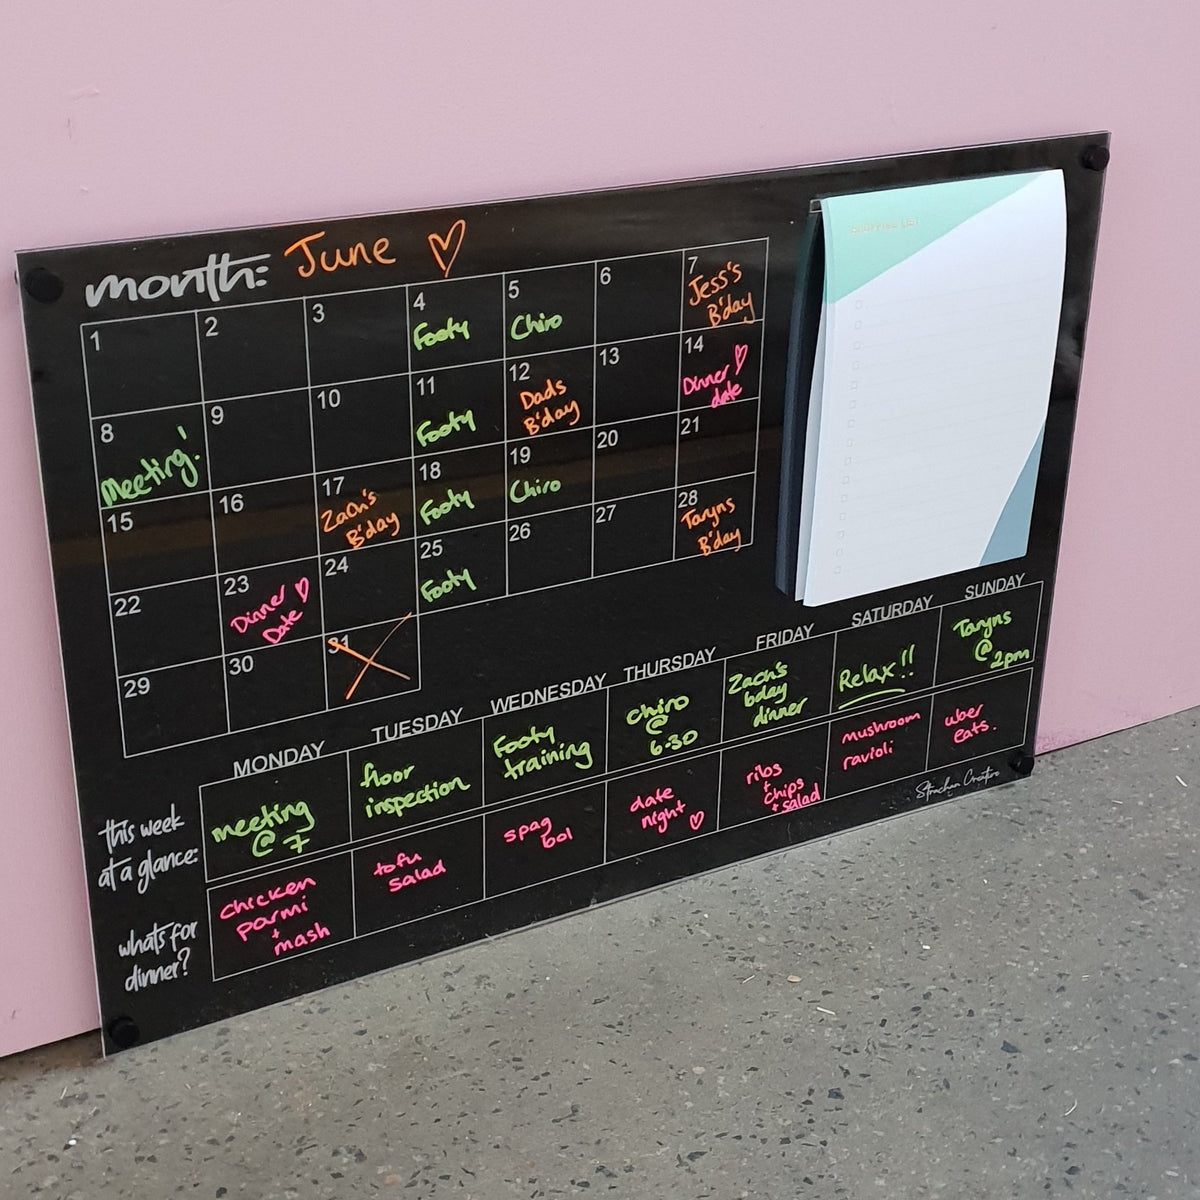 month: June ♡
1
2
3
4
Footy
5
Chiro
6
7
Jess's
B'day
8
Meeting!
9
10
11
Footy
12
Dads
B'day
13
14
Dinner ♡
date
15
16
17
Zach's
B'day
18
Footy
19
Chiro
20
21
22
23
Dinner ♡
Date
24
25
Footy
26
27
28
Taryns
B'day
29
30
31
SHOPPING LIST
MONDAY
TUESDAY
WEDNESDAY
THURSDAY
FRIDAY
SATURDAY
SUNDAY
this week
at a glance:
meeting
@ 7
floor
inspection
Footy
training
chiro
@
6:30
Zach's
bday
dinner
Relax!!
Taryns
@
2pm
whats for
dinner?
chicken
parmi
+
mash
tofu
salad
spag
bol
date
night ♡
ribs
+
chips
+ salad
mushroom
ravioli
uber
eats.
Strachan Creative